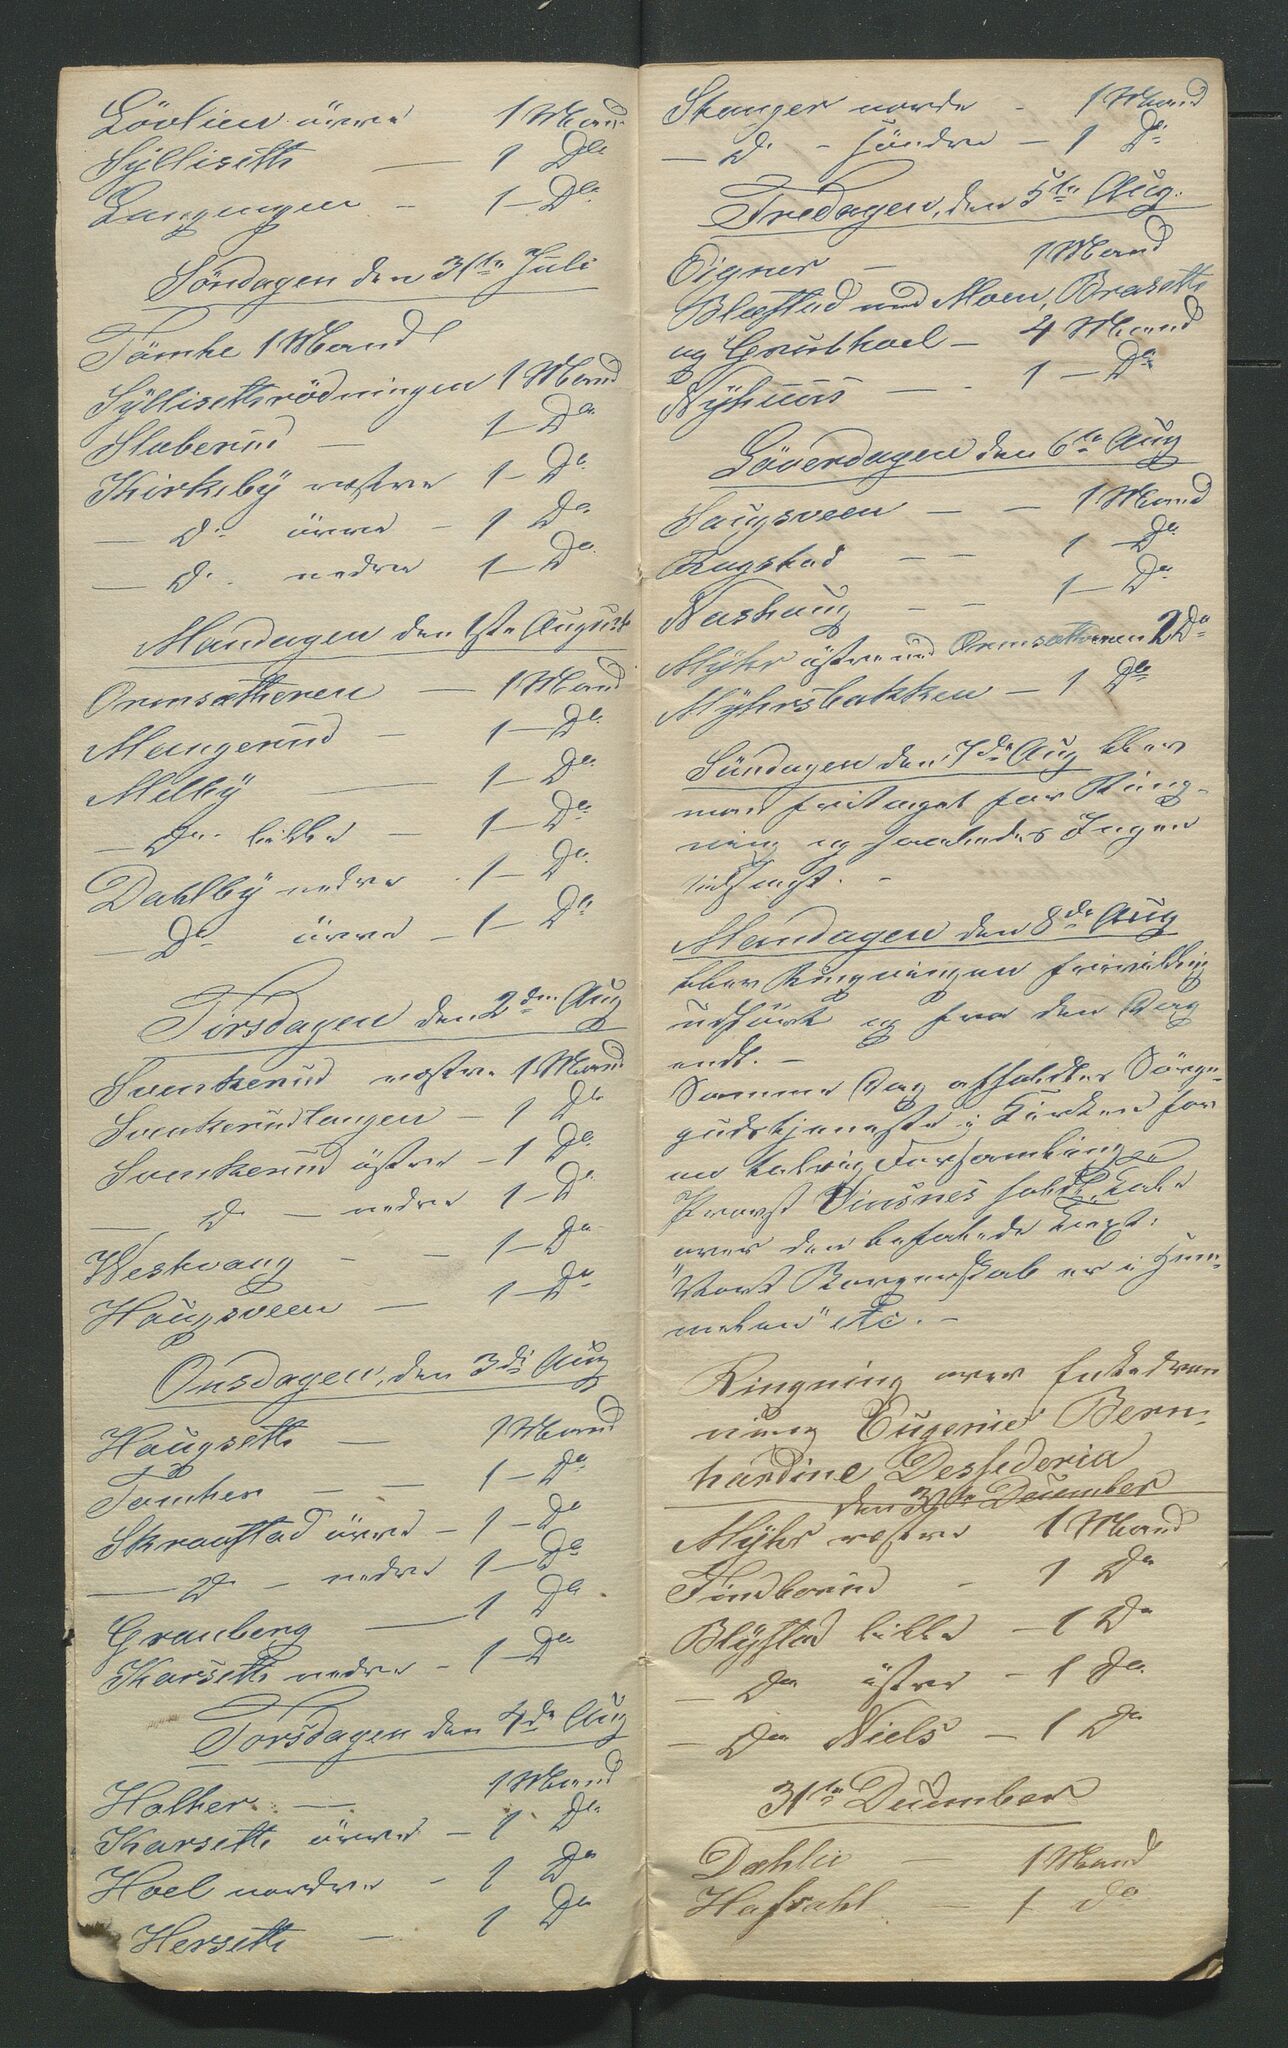 Lövlien övre 1 Mand
Sylliseth — 1 Do
Langengen - 1 - Do
Söndagen den 31te Juli
Tömte 1 Mand
Syllisethrödningen 1 Mand
Slaberud — 1 - Do
Kirkeby vestre 1 - Do
— Do övre - 1 Do
— Do nedre 1 - Do
Mandagen den 1ste August
Ormsætheren — 1 Mand
Mangerud - 1 - Do
Melby — 1 - Do
— Do lille - 1 - Do
Dahlby nedre - 1 - Do
— Do övre - 1 - Do
Tirsdagen den 2den Aug
Svenkerud vestre 1 Mand
Svenkerudlangen - 1 Do
Svenkerud östre - 1 Do
— Do - nedre 1 - Do
Westvang - - 1 - Do
Haugsveen — 1 - Do
Onsdagen, den 3die Aug
Haugseth — 1 Mand
Tomter - - 1 - Do
Skraastad övre - 1 - Do
— Do - nedre 1 - Do
Granberg — 1 Do
Karseth nedre - 1 - Do
Torsdagen den 4de Aug
Holter — 1 Mand
Karseth övre - 1 Do
Hoel nordre - 1 Do
Herseth — 1 Do
Stanger nordre - 1 Mand
— Do - söndre - 1 Do
Fredagen, den 5te Aug.
Oigner - 1 Mand
Blæstad med Moen, Braseth
og Grubhoel - 4 Mand
Nyhuus - - 1 - Do
Löverdagen den 6te Aug
Saugsveen - - 1 Mand
Rugstad - - 1 - Do
Nashaug - - 1 - Do
Myhr östre med Ormsætheren 2 Do
Myhrsbakken - 1 Do
Söndagen den 7de Aug blev
man fritaget for Ring-
ning og saaledes Ingen
tilsagt. -
Mandagen den 8de Aug
blev Ringningen frivillig
udfört og fra den Dag
endt. -
Samme Dag afholdtes Sörge-
gudstjeneste i Kirken for
en talrig Forsamling
Provst Dinsnes holdt Tale
over den befalede Text:
"Vort Borgerskab er i Him-
melen" etc. -
Ringning over Enkedron
ning Eugenie Bern-
hardine Dessederia
den 30te December
Myhr vestre 1 Mand
Findborud - 1 Do
Blystad lille - 1 Do
— Do östre - 1 Do
— Do Niels - 1 Do
31te December
Dæhlie — 1 Mand
Hafsahl — 1 Do